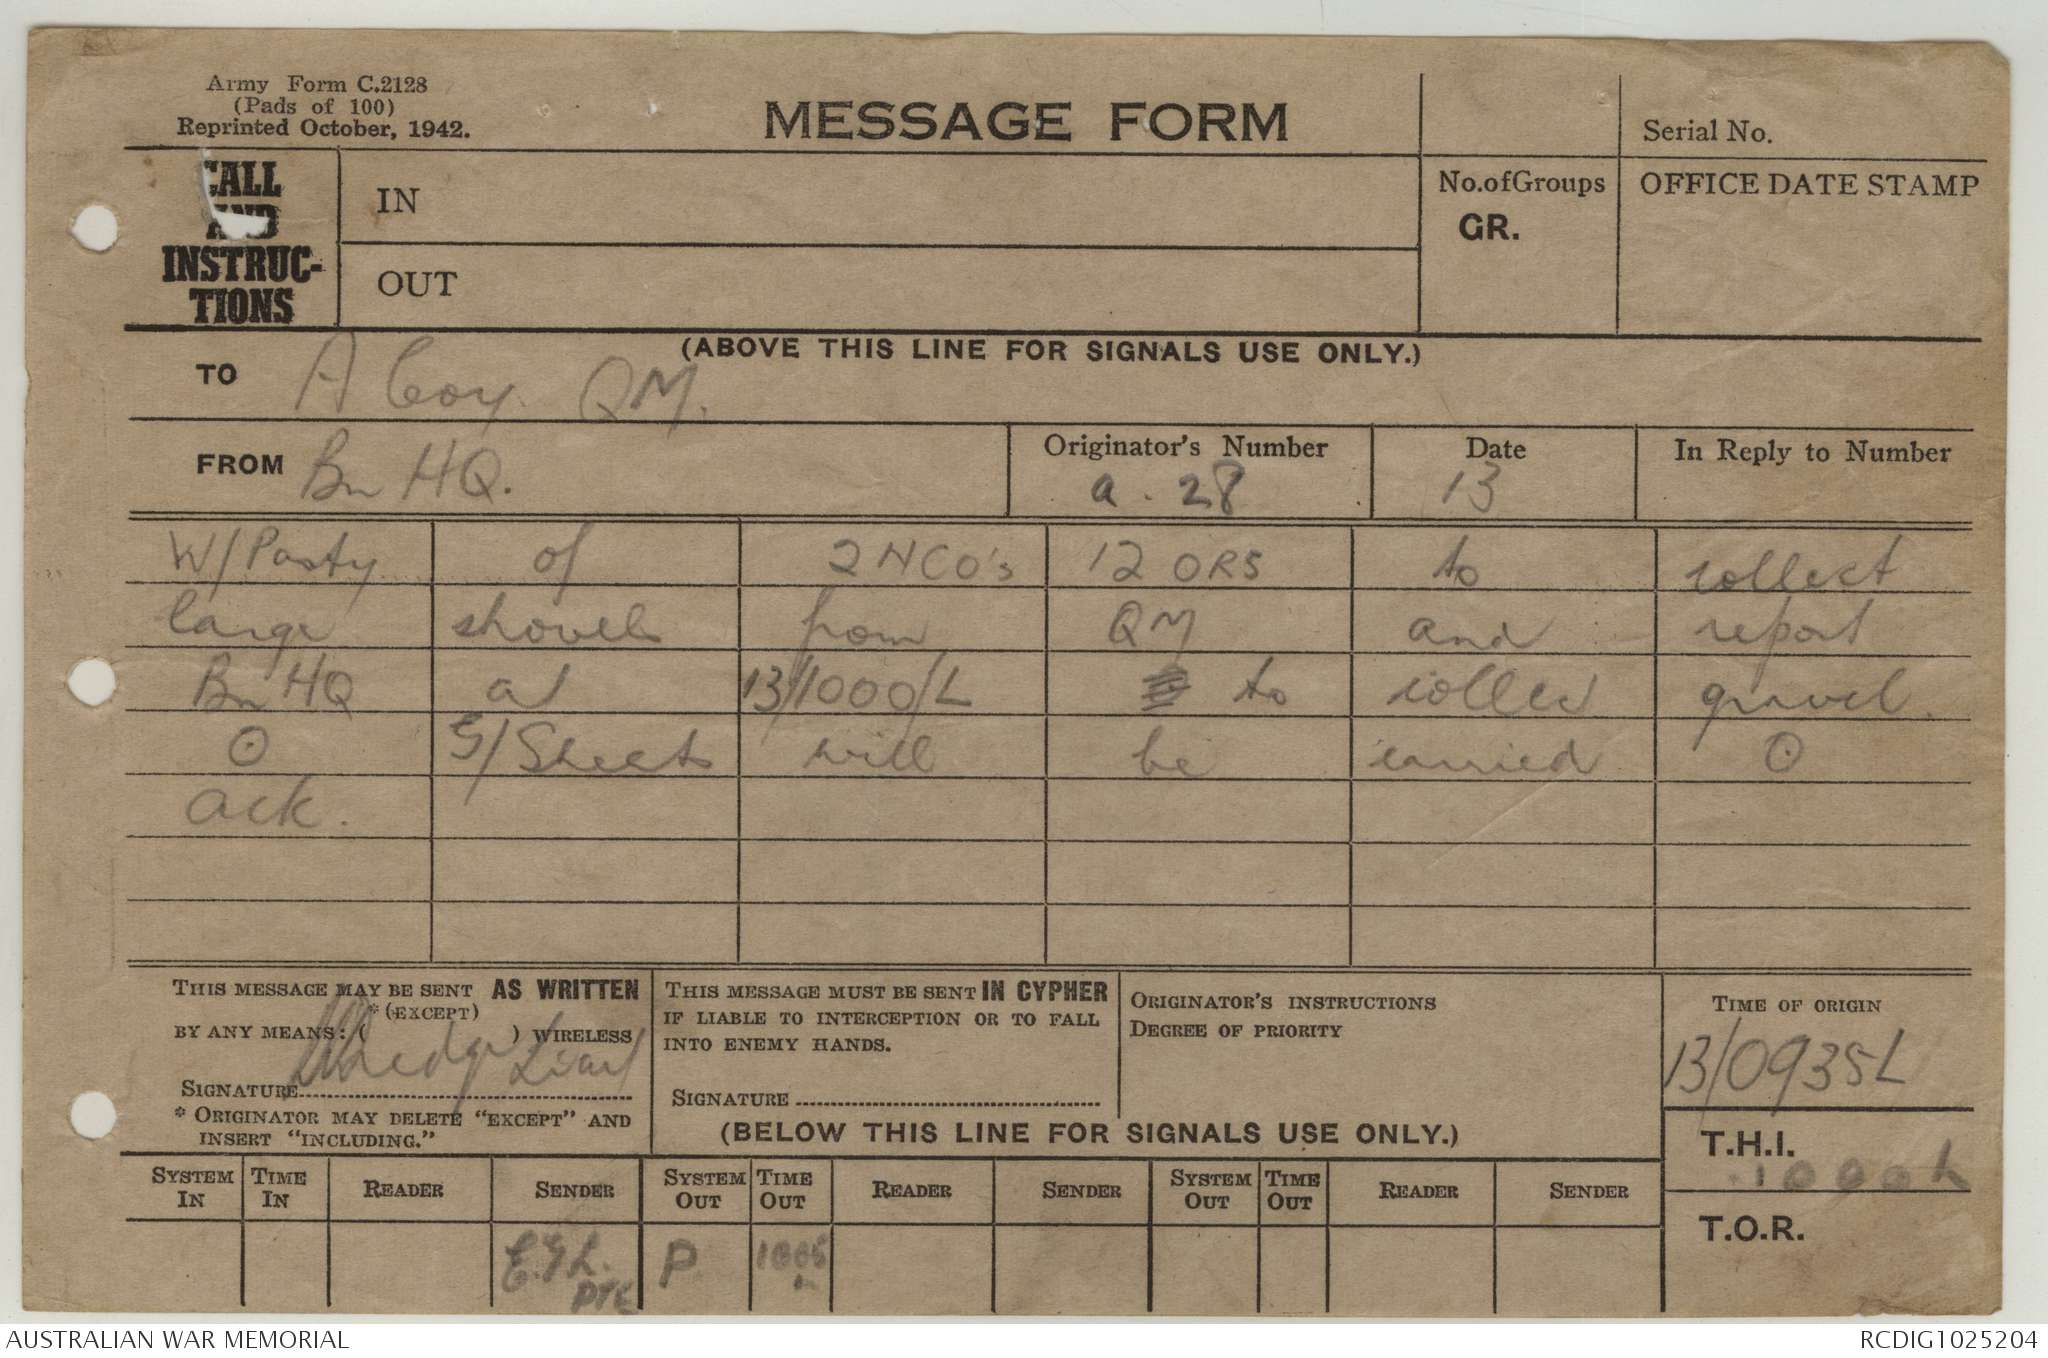 Army Form C.2128
(Pads of 100)
Reprinted October, 1942.
MESSAGE FORM
Serial No.
CALL AND INSTRUC-TIONS
IN
OUT
No.ofGroups
GR.
OFFICE DATE STAMP
(ABOVE THIS LINE FOR SIGNALS USE ONLY.)
TO A Coy. QM.
FROM Bn HQ.
Originator's Number
a . 28
Date
13
In Reply to Number
W/Party of 2 NCO's 12 ORS to collect
large shovels from QM and report
Bn HQ at 13/1000/L to collect gravel.
O G/Sheets will be carried O
ack.
THIS MESSAGE MAY BE SENT AS WRITTEN
*(EXCEPT)
BY ANY MEANS: ( ) WIRELESS
SIGNATURE
* ORIGINATOR MAY DELETE "EXCEPT" AND
INSERT "INCLUDING."
THIS MESSAGE MUST BE SENT IN CYPHER
IF LIABLE TO INTERCEPTION OR TO FALL
INTO ENEMY HANDS.
SIGNATURE
ORIGINATOR'S INSTRUCTIONS
DEGREE OF PRIORITY
TIME OF ORIGIN
13/0935L
(BELOW THIS LINE FOR SIGNALS USE ONLY.)
T.H.I.
1000L
T.O.R.
SYSTEM IN TIME IN READER SENDER SYSTEM OUT TIME OUT READER SENDER SYSTEM OUT TIME OUT READER SENDER
P 1005
PTE
AUSTRALIAN WAR MEMORIAL
RCDIG1025204